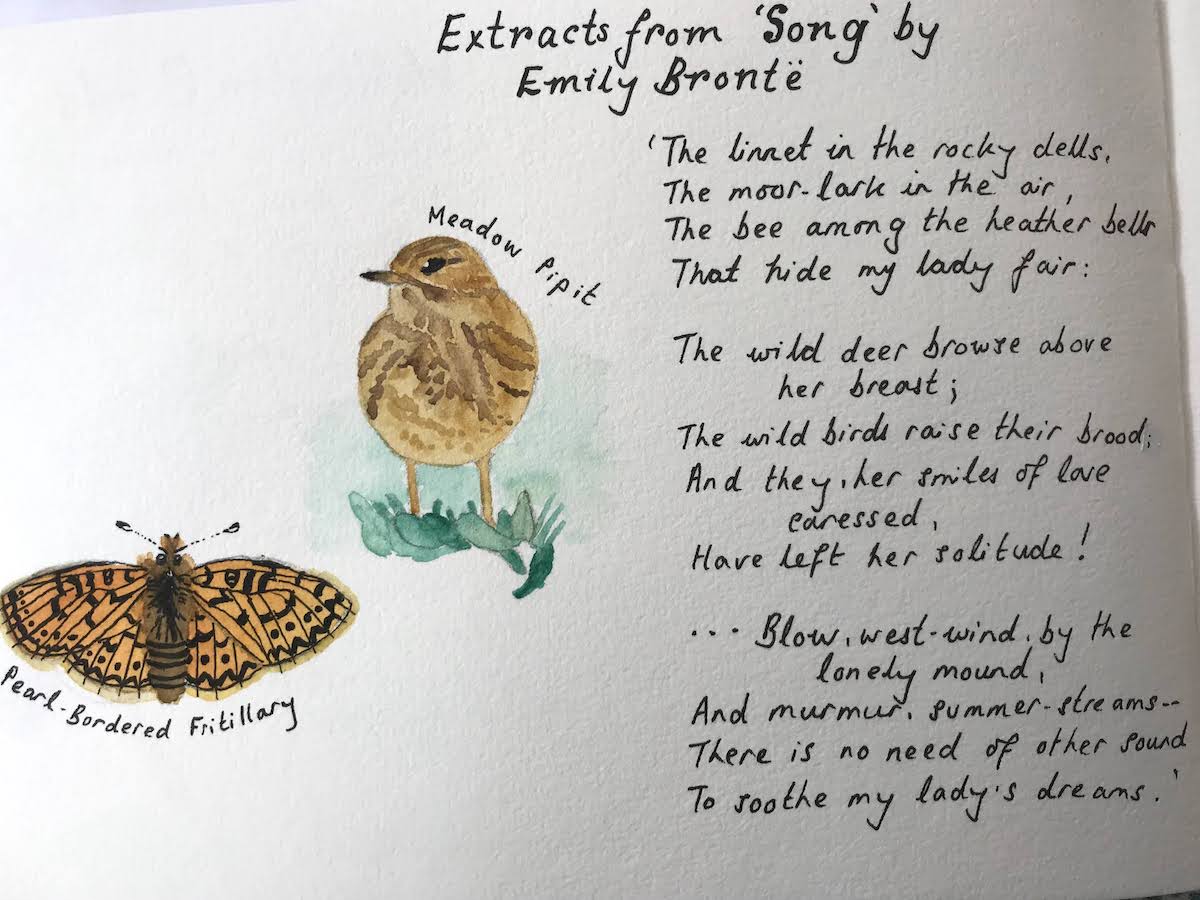 Extracts from 'Song' by
Emily Brontë
'The linnet in the rocky dells,
The moor-lark in the air,
The bee among the heather bells
That hide my lady fair:
The wild deer browse above
her breast;
The wild birds raise their brood;
And they, her smiles of love
caressed,
Have left her solitude!
... Blow, west-wind, by the
lonely mound,
And murmur, summer-streams--
There is no need of other sound
To soothe my lady's dreams.'
Meadow Pipit
Pearl-Bordered Fritillary